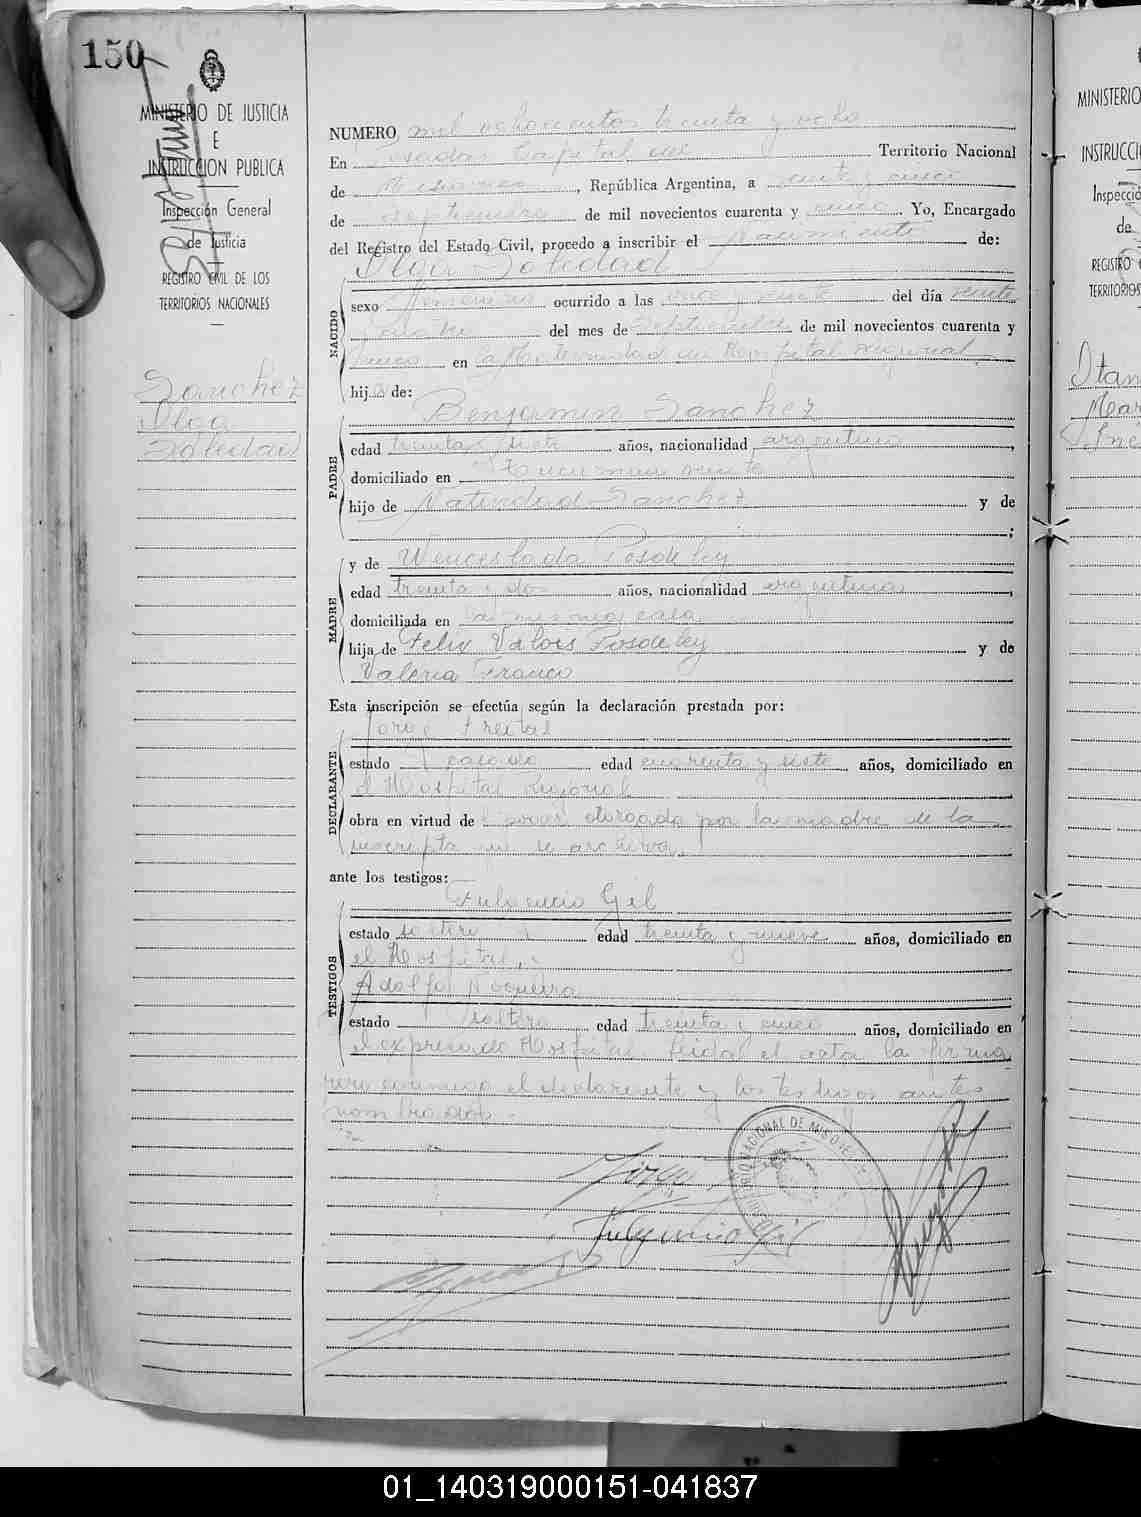 150
MINISTERIO DE JUSTICIA
E
INSTRUCCION PUBLICA
Inspección General
de Justicia
REGISTRO CIVIL DE LOS
TERRITORIOS NACIONALES
Sanchez
Olga
Soledad
NUMERO mil ochocientos treinta y ocho
En Posadas Capital del Territorio Nacional
de Misiones, República Argentina, a veinte y cinco
de septiembre de mil novecientos cuarenta y cinco. Yo, Encargado
del Registro del Estado Civil, procedo a inscribir el Nacimiento de:
Olga Soledad
NACIDO
sexo femenino ocurrido a las once y veinte del día veinte
del mes de septiembre de mil novecientos cuarenta y
cinco en la Maternidad del Hospital Regional
hija de:
Benjamin Sanchez
PADRE
edad treinta y siete años, nacionalidad argentino,
domiciliado en Tucuman
hijo de Natividad Sanchez y de
;
y de Wenceslada Posdeley
MADRE
edad treinta y dos años, nacionalidad argentina,
domiciliada en la misma casa
hija de Felix Valois Posdeley y de
Valeria Franco
Esta inscripción se efectúa según la declaración prestada por:
Jorge Freital
DECLARANTE
estado casado edad cuarenta y siete años, domiciliado en
el Hospital Regional
obra en virtud de poder otorgado por la madre de la
inscripta que se archiva.
ante los testigos:
Fulgencio Gil
TESTIGOS
estado soltero edad treinta y nueve años, domiciliado en
el Hospital,
Adolfo Nogueira
estado soltero edad treinta y cinco años, domiciliado en
el expresado Hospital. Leida el acta la firma
ron conmigo el declarante y los testigos antes
nombrados.-
Jorge
Fulgencio Gil
MINISTERIO
INSTRUCCI
Inspecció
de
REGISTRO
TERRITORIOS
Mar
Iné
01_140319000151-041837